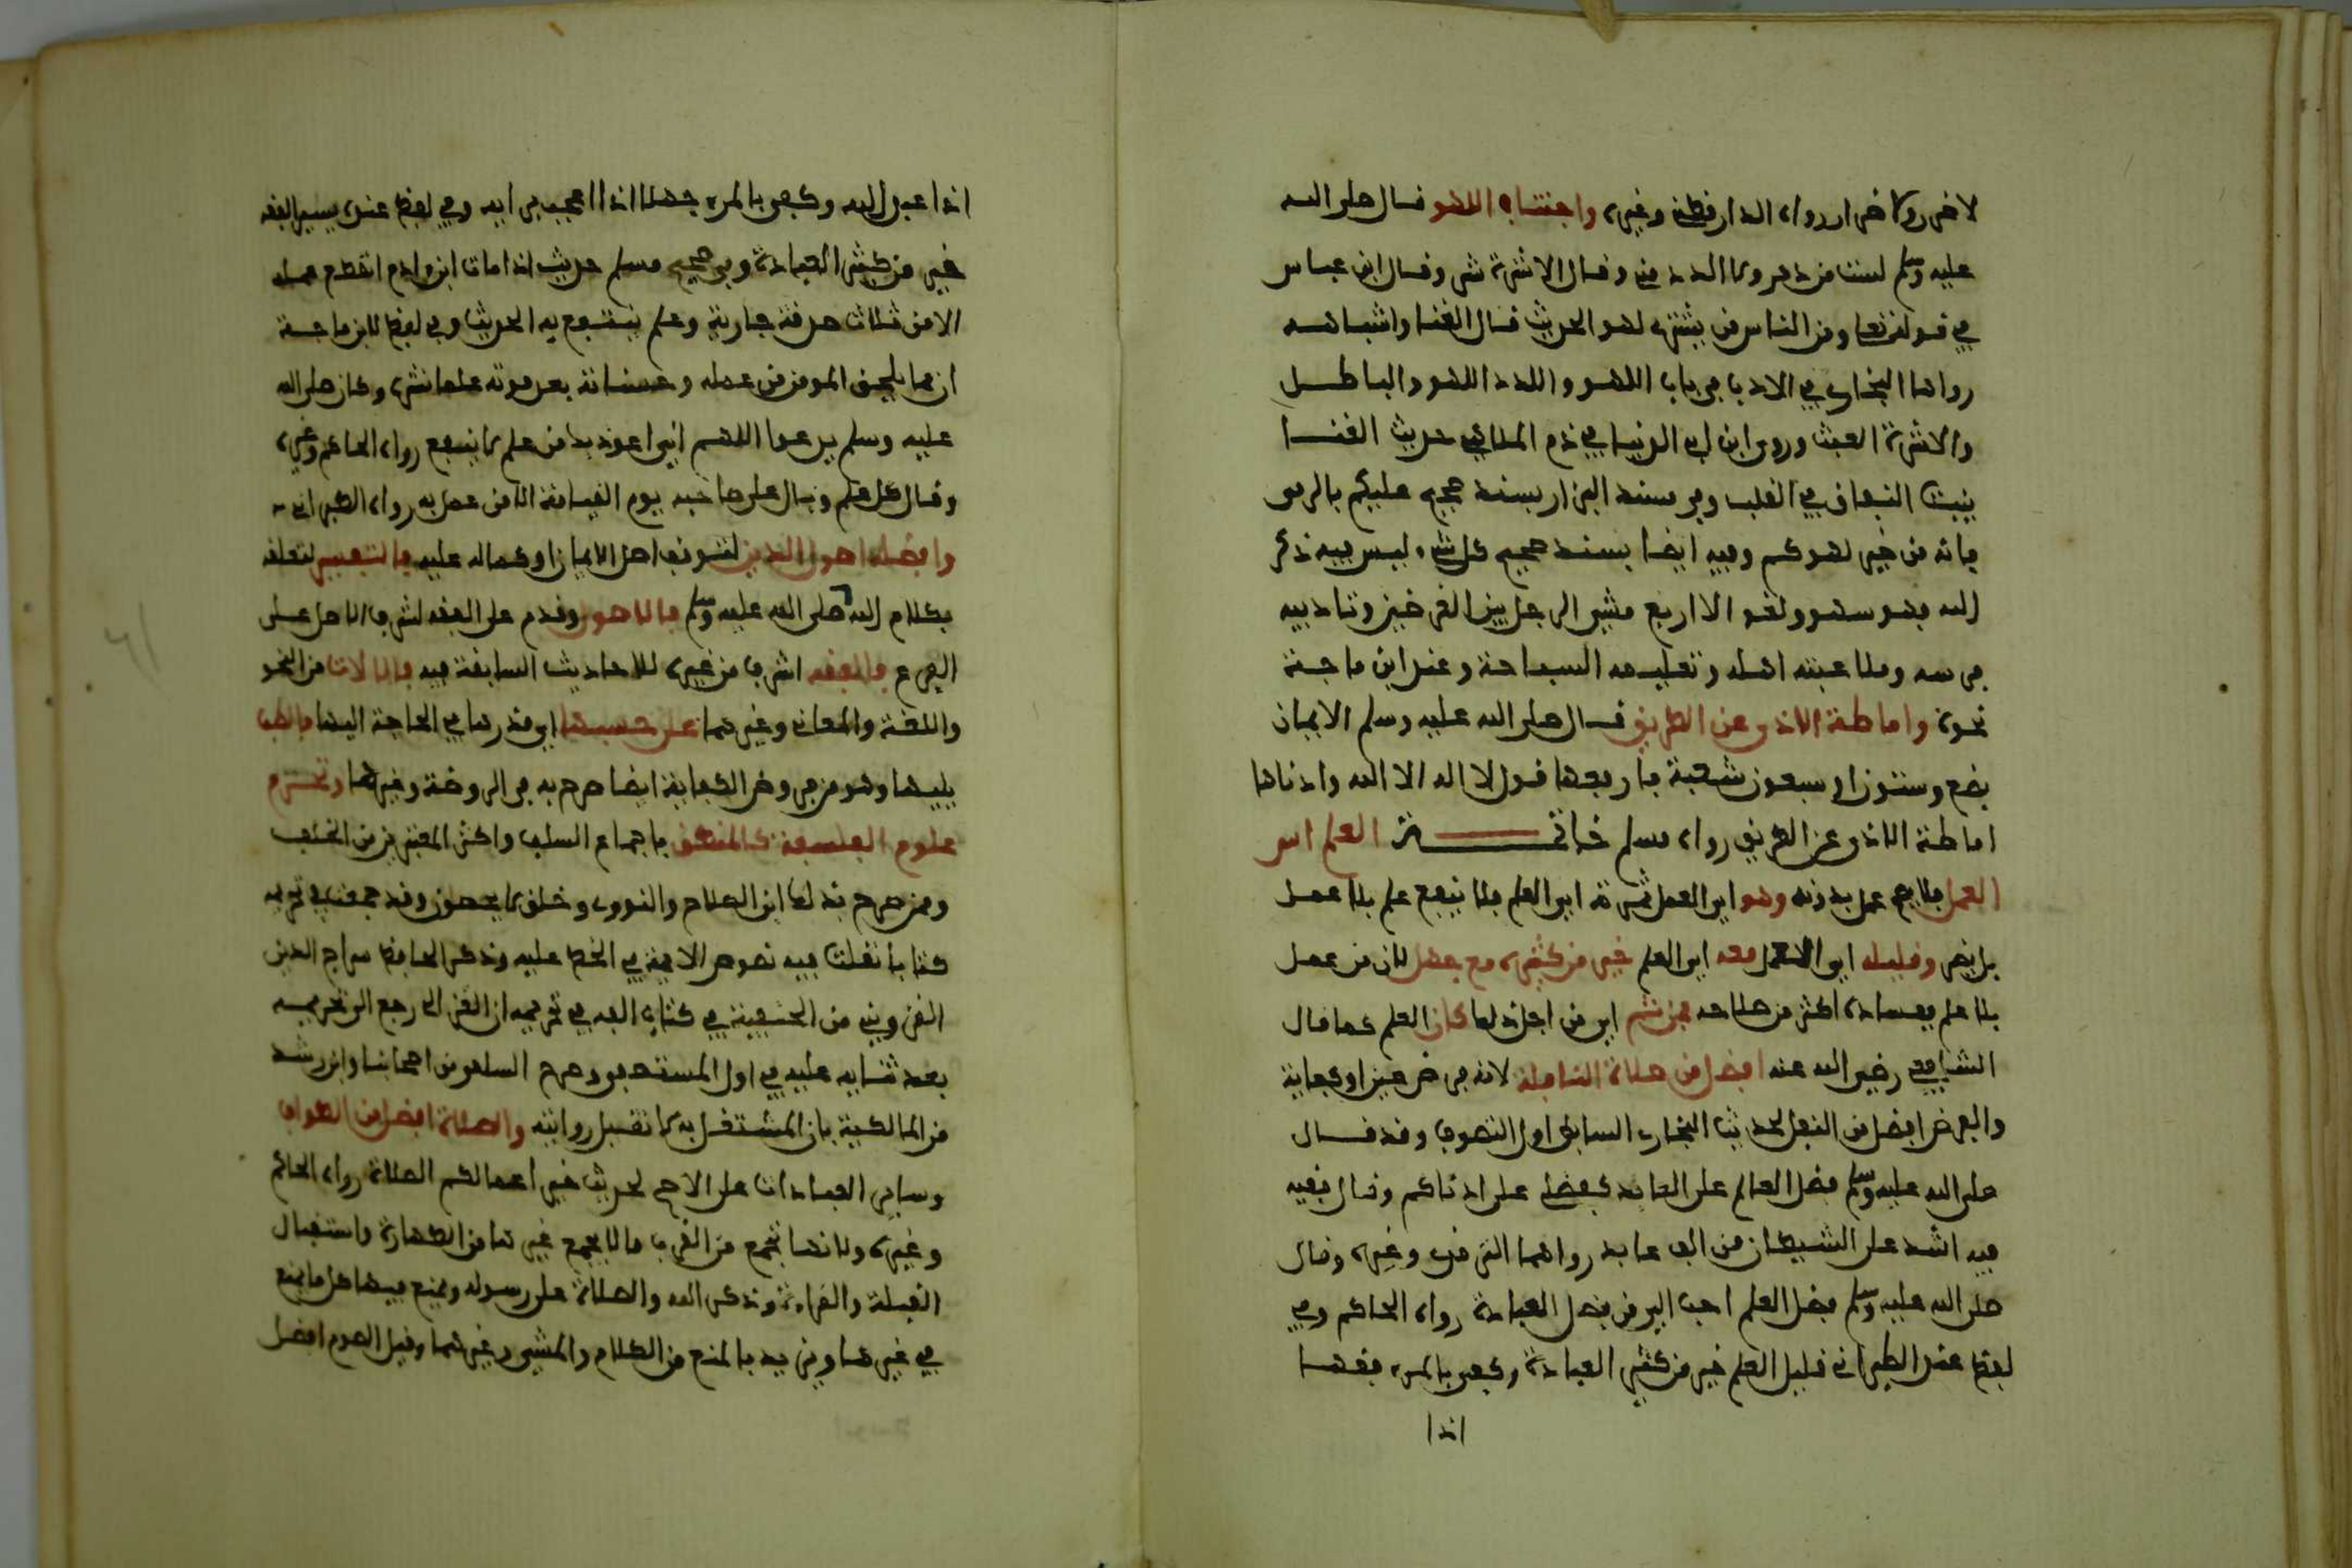 لا ضرر ولا ضرار رواه الدارقطني وغيره واجتناب اللهو قال صلى الله
عليه وسلم لست من دد ولا الدد مني وقال الاشرة شر وقال ابن عباس
في قوله تعا ومن الناس من يشتري لهو الحديث قال الغنا واشباهه
رواها البخاري في الادب في باب اللهو والدد اللهو والباطل
والاشرة العبث وروى ابن ابي الدنيا في ذم الملاهي حديث الغنا
ينبت النفاق في القلب وفي مسند البزار بسند صحيح عليكم بالرمي
فانه من خير لهوكم وفيه ايضا بسند صحيح كل شيء ليس فيه ذكر
الله فهو سهو ولغو الا اربع مشي الرجل بين الغرضين وتاديبه
فرسه وملاعبته اهله وتعليمه السباحة وعند ابن ماجة
نحوه واماطة الاذى عن الطريق قال صلى الله عليه وسلم الايمان
بضع وستون او سبعون شعبة فارفعها قول لا اله الا الله وادناها
اماطة الاذى عن الطريق رواه مسلم خاتمة العلم اس
العمل فلا يصح عمل بدونه وهو اي العمل ثمرته اي العلم فلا ينفع علم بلا عمل
بل يضر وقليله اي العمل معه اي العلم خير من كثيره مع جهل لان من عمل
بلا علم ففساده اكثر من صلاحه فمن ثم اي من اجل ذلك كان العلم كما قال
الشافعي رضي الله عنه افضل من صلاة النافلة لانه فرض عين او كفاية
والفرض افضل من النفل لحديث البخاري السابق اول التصوف وقد قال
صلى الله عليه وسلم فضل العالم على العابد كفضلي على ادناكم وقال فقيه
فيه اشد على الشيطان من الف عابد رواهما الترمذي وغيره وقال
صلى الله عليه وسلم فضل العلم احب الي من فضل العبادة رواه الحاكم وفي
لفظ عند الطبراني قليل العلم خير من كثير العبادة وكفى بالمرء فقها
اذا
اذا عبد الله وكفى بالمرء جهلا اذا اعجب برايه وفي لفظ عنده يسير الفقه
خير من كثير العبادة وفي صحيح مسلم حديث اذا مات ابن ادم انقطع عمله
الا من ثلاث صدقة جارية وعلم ينتفع به الحديث وفي لفظ لابن ماجة
ان مما يلحق المومن من عمله وحسناته بعد موته علما نشره وكان صلى الله
عليه وسلم يدعوا اللهم اني اعوذ بك من علم لا ينفع رواه الحاكم وغيره
وقال كل علم وبال على صاحبه يوم القيامة الا من عمل به رواه الطبراني
وافضله اصول الدين لتوقف اصل الايمان او كماله عليه فالتفسير لتعلقه
بكلام الله صلى الله عليه وسلم فالاصول وقدم على الفقه لشرف الاصل على
الفرع فالفقه اشرف من غيره للاحاديث السابقة فيه فالالات من النحو
واللغة والمعاني وغيرهما على حسبها اي قدرها في الحاجة اليها فالطب
يليها وهو من فروض الكفاية ايضا صرح به في الروضة وغيرها وتحرم
علوم الفلسفة كالمنطق باجماع السلف واكثر المعتبرين من الخلف
وممن صرح بذلك ابن الصلاح والنووي وخلق لا يحصون وقد جمعت في تحريمه
كتابا نقلت فيه نصوص الايمة في الحط عليه وذكر الحافظ سراج الدين
القزويني من الحنفية في كتاب الفه في تحريمه ان الغزالي رجع الى تحريمه
بعد ثنايه عليه في اول المستصفى وصرح السلفي من اصحابنا وابن رشد
من المالكية بان المشتغل به لا تقبل روايته والصلاة افضل من الطواف
وساير العبادات على الاصح لحديث خير اعمالكم الصلاة رواه الحاكم
وغيره ولانها تجمع من القرب ما لا يجمع غيرها من الطهارة واستقبال
القبلة والقراءة وذكر الله والصلاة على رسوله ويمنع فيها كل ما يمنع
في غيرها وتزيد بالمنع من الكلام والمشي وغيرهما وقيل الصوم افضل